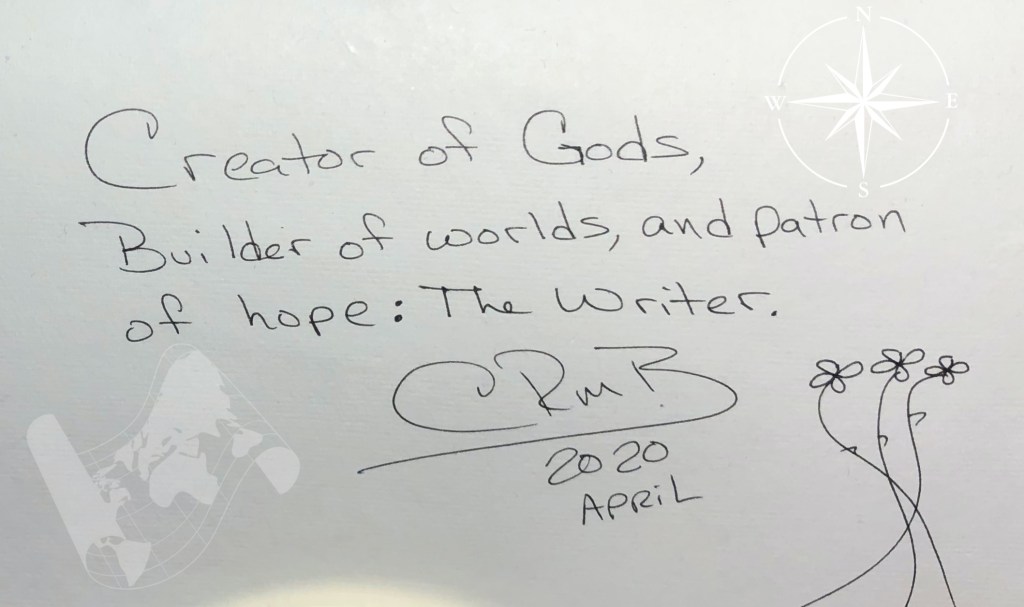 N
W E
S
Creator of Gods,
Builder of worlds, and patron
of hope: The Writer.
CRmB
2020
APRiL